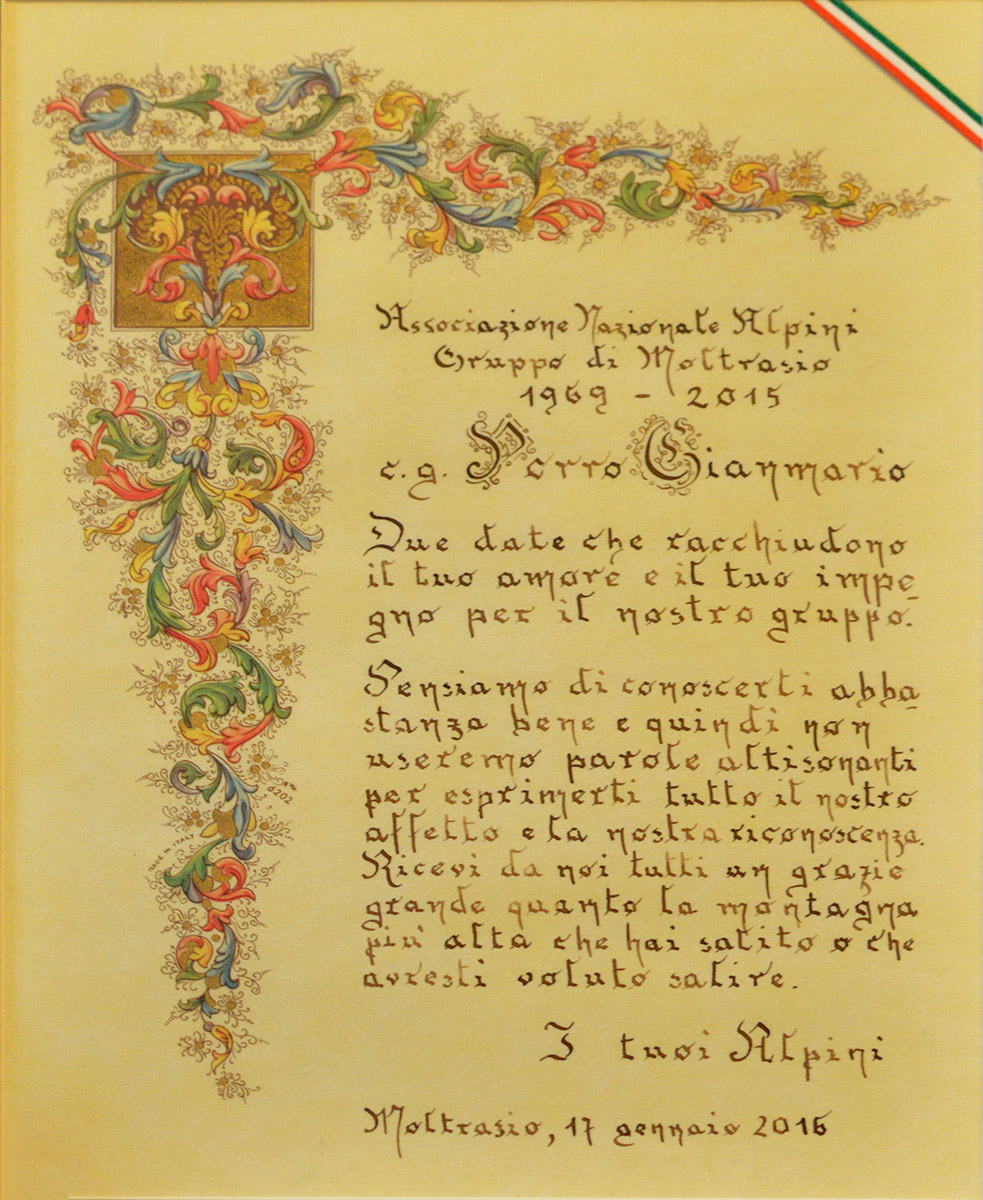 Associazione Nazionale Alpini
Gruppo di Moltrasio
1969 - 2015
c.g. Porro Gianmario
Due date che racchiudono
il tuo amore e il tuo impe
gno per il nostro gruppo.
Pensiamo di conoscerti abba
stanza bene e quindi non
useremo parole altisonanti
per esprimerti tutto il nostro
affetto e la nostra riconoscenza.
Ricevi da noi tutti un grazie
grande quanto la montagna
più alta che hai salito o che
avresti voluto salire.
I tuoi Alpini
Moltrasio, 17 gennaio 2016
6202
MADE IN ITALY